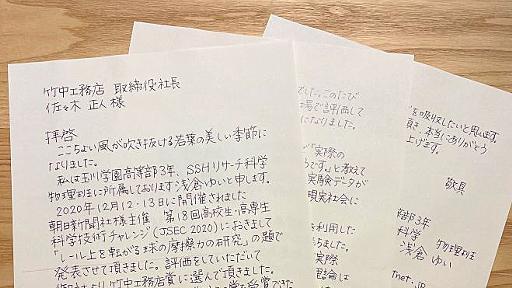 竹中工務店 取締役社長
佐々木 正人 様
拝啓
ここちよい風が吹き抜ける若葉の美しい季節に
なりました。
私は玉川学園高等部3年、SSHリサーチ科学
物理班に所属しております浅倉ゆいと申します。
2020年12月12・13日に開催されました
朝日新聞社様主催 第18回高校生・高専生
科学技術チャレンジ(JSEC 2020)におきまして
「レール上を転がる球の摩擦力の研究」の題で
発表させて頂きました。評価をしていただいて
竹中工務店賞に選んで頂きました。
でした。このたび
場で評価して
になりました。
「実際の
です。」と教えて
実験データが
現実社会に
利用した
ちました。
実際
を吸収したいと思います。
頂き、本当にありがとう
上げます。
敬具
部3年
科学 物理班
浅倉 ゆい